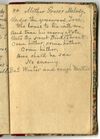 Mother Goose's Melody.
Under the greenwood Tree,
Who loves to lie with me,
And tune his merry note,
the sweet Bird's throat:
Come hither, come hither,
Come hither,
Here shall he see
No enemy
But Winter and rough Weather